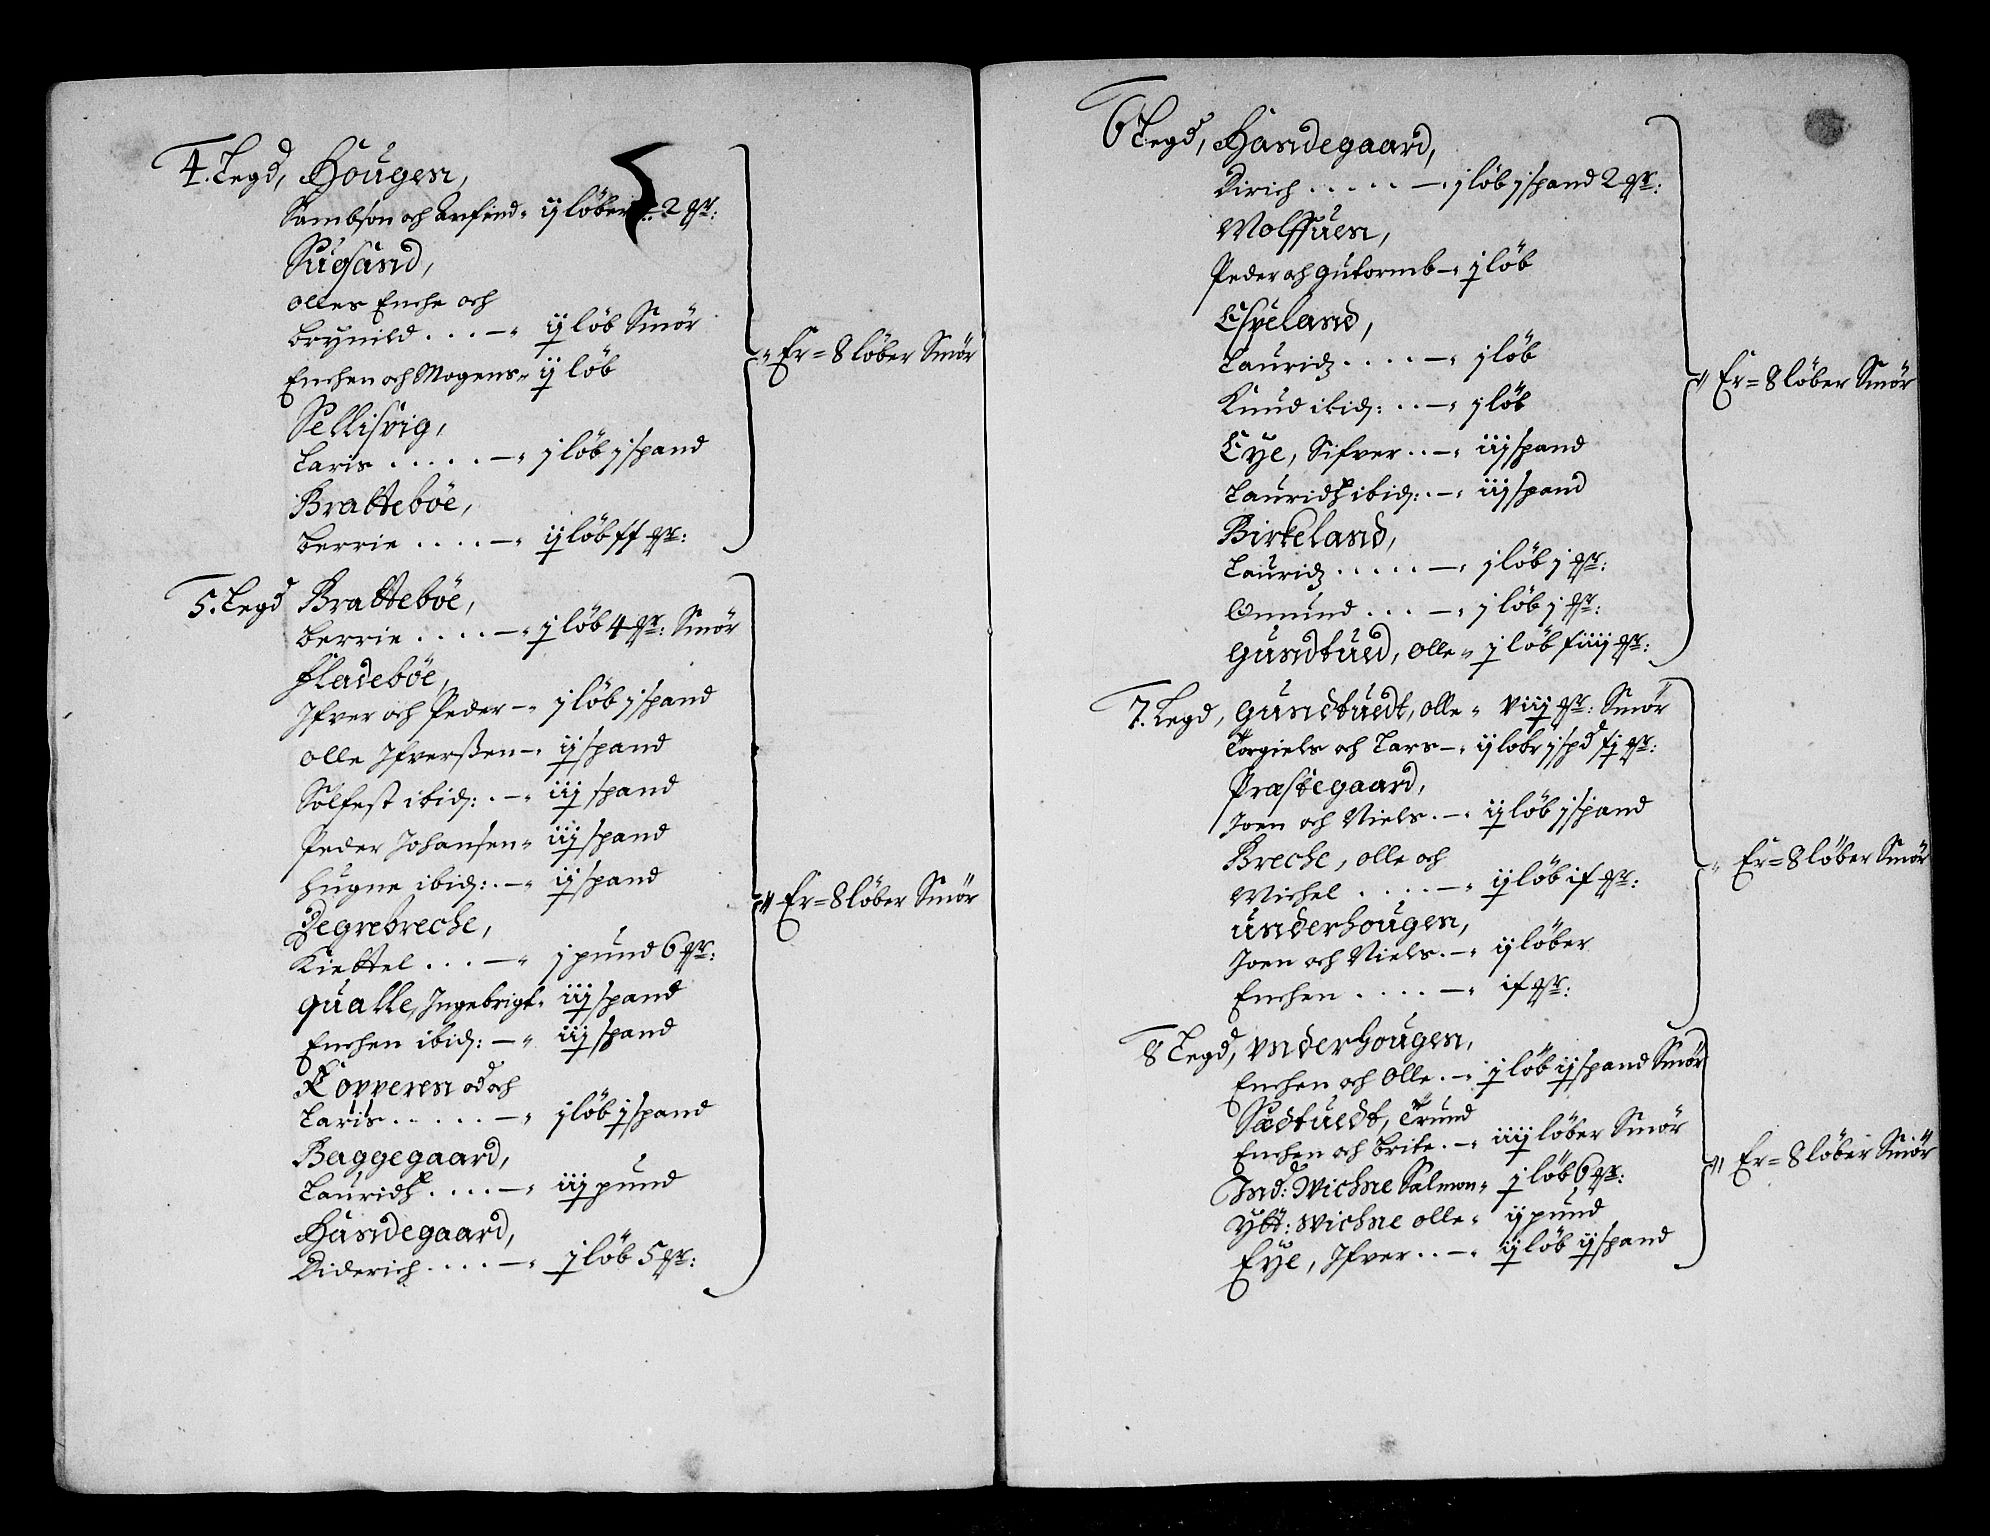 4. Legd, Hougen,
Sambson och Anfind " ij löber 2 mr:
Sugsand,
Olles Enche och
Brynild . . . — " ij löb Smör
Enchen och Mogens " ij löb
Sellisvig,
Laris . . . . . — " j löb j spand
Bratteböe,
Berrie . . . . — " ij löb ff mr:
" Er = 8 löber Smör
5. Legd Bratteböe,
Berrie . . . . — " j löb 4 mr: Smör
Fladeböe,
Ifver och Peder — " j löb j spand
Olle Ifverßen — " ij spand
Solfest ibid: . — " iij spand
Peder Johansen " iij spand
Hugne ibid: . — " ij spand
Degrebreche,
Kiettel . . . — " j pund 6 mr:
Qualle, Ingebrigt " iij spand
Enchen ibid: — " iij spand
Copperen och
Laris . . . . . — " j löb j spand
Baggegaard,
Lauridtz . . . . — " iij pund
Handegaard,
Diderich . . . . — " j löb 5 mr:
" Er = 8 löber Smör
6 Legd, Handegaard,
Dirich . . . . . — " j löb j spand 2 mr:
Wolffuen,
Peder och Gutormb — " j löb
Espeland,
Lauridz . . . . — " j löb
Knud ibid: . . — " j löb
Eye, Sifver . . — " iij spand
Lauridtz ibid: . — " iij spand
Birkeland,
Lauridz . . . . . — " j löb j mr:
Omund . . . — " j löb j mr:
Gundtued, Olle " j löb fiiij mr:
" Er = 8 löber Smör
7. Legd, Gundtuedt, Olle " viij mr: Smör
Torgiels och Lars — " ij löbr j spd fj mr:
Præstegaard,
Joen och Niels . — " ij löb j spand
Breche, Olle och
Michel . . . . — " ij löb if mr:
Underhougen,
Joen och Niels . — " ij löber
Enchen . . . . — " if mr:
" Er = 8 löber Smör
8 Legd, Vnderhougen,
Enchen och Olle . — " j löb ij spand Smör
Sædtuedt, Trund
Enchen och Brite . — " iiij löber Smör
Ind: Wichne Salmon " j löb 6 mr:
Ytt: Wichne Olle " ij pund
Eye, Ifver . . — " ij löb ij spand
" Er = 8 löber Smör